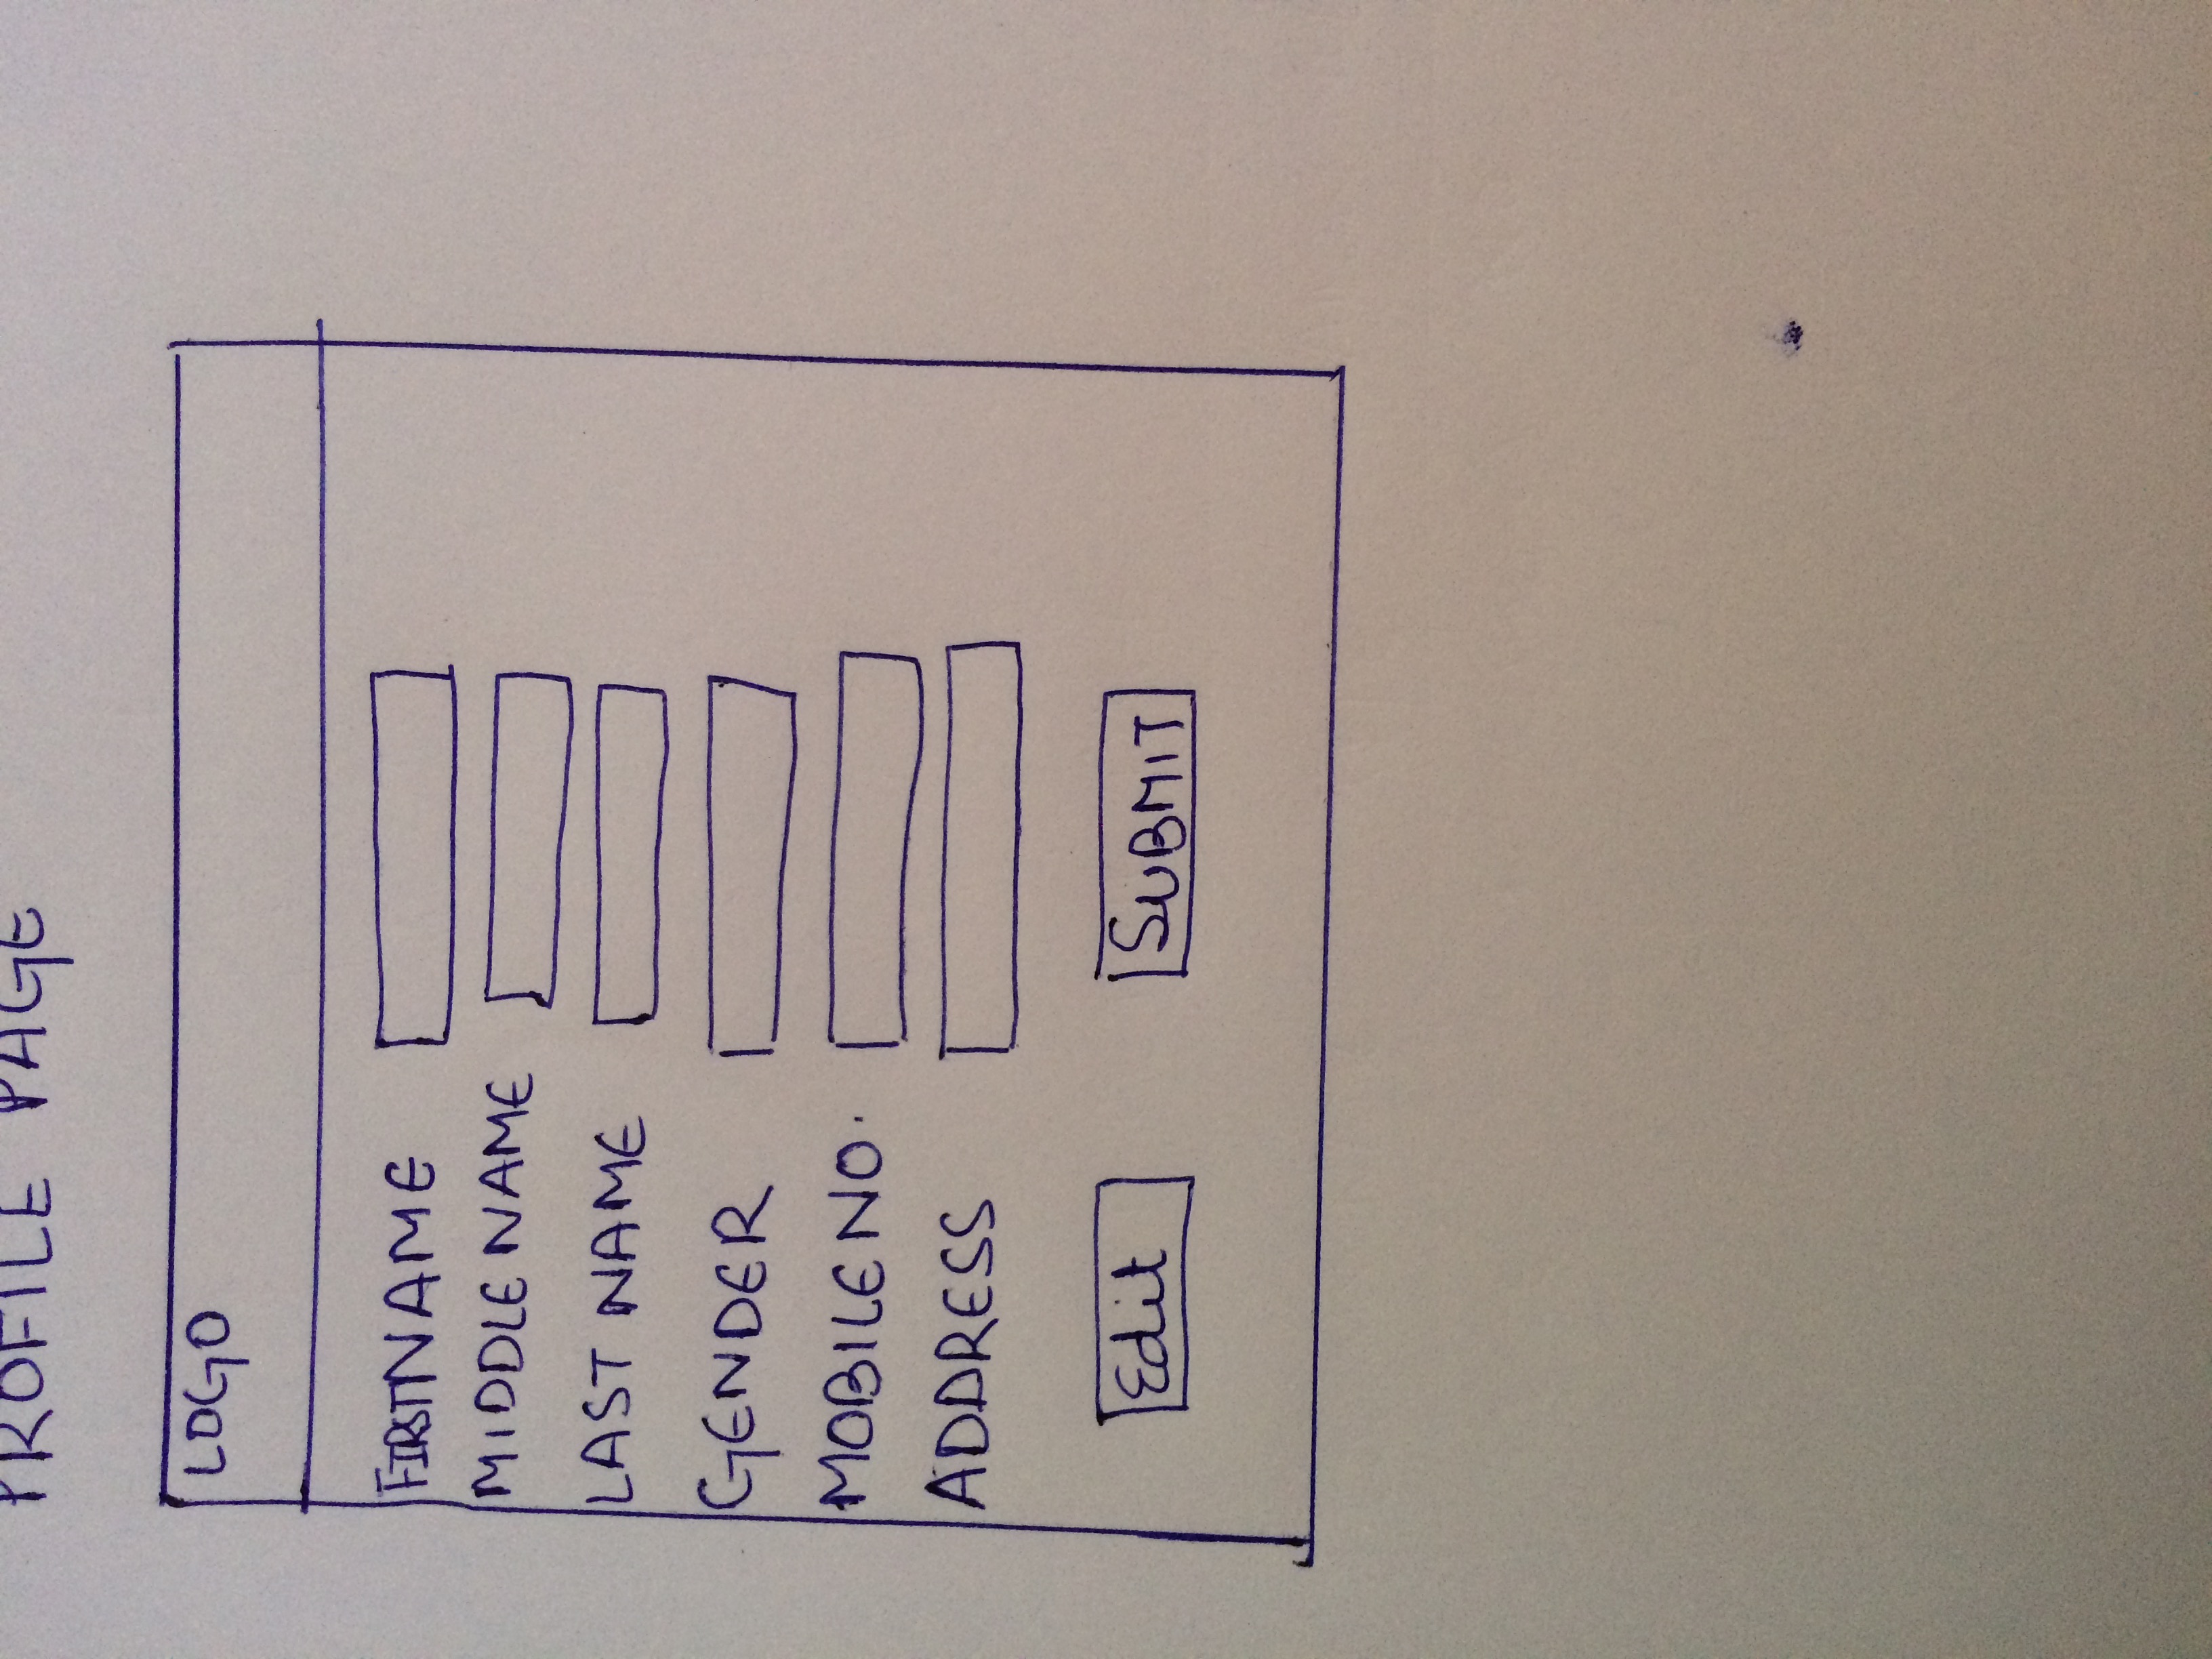 PROFILE PAGE
LOGO
FIRSTNAME
MIDDLE NAME
LAST NAME
GENDER
MOBILE NO.
ADDRESS
Edit SUBMIT